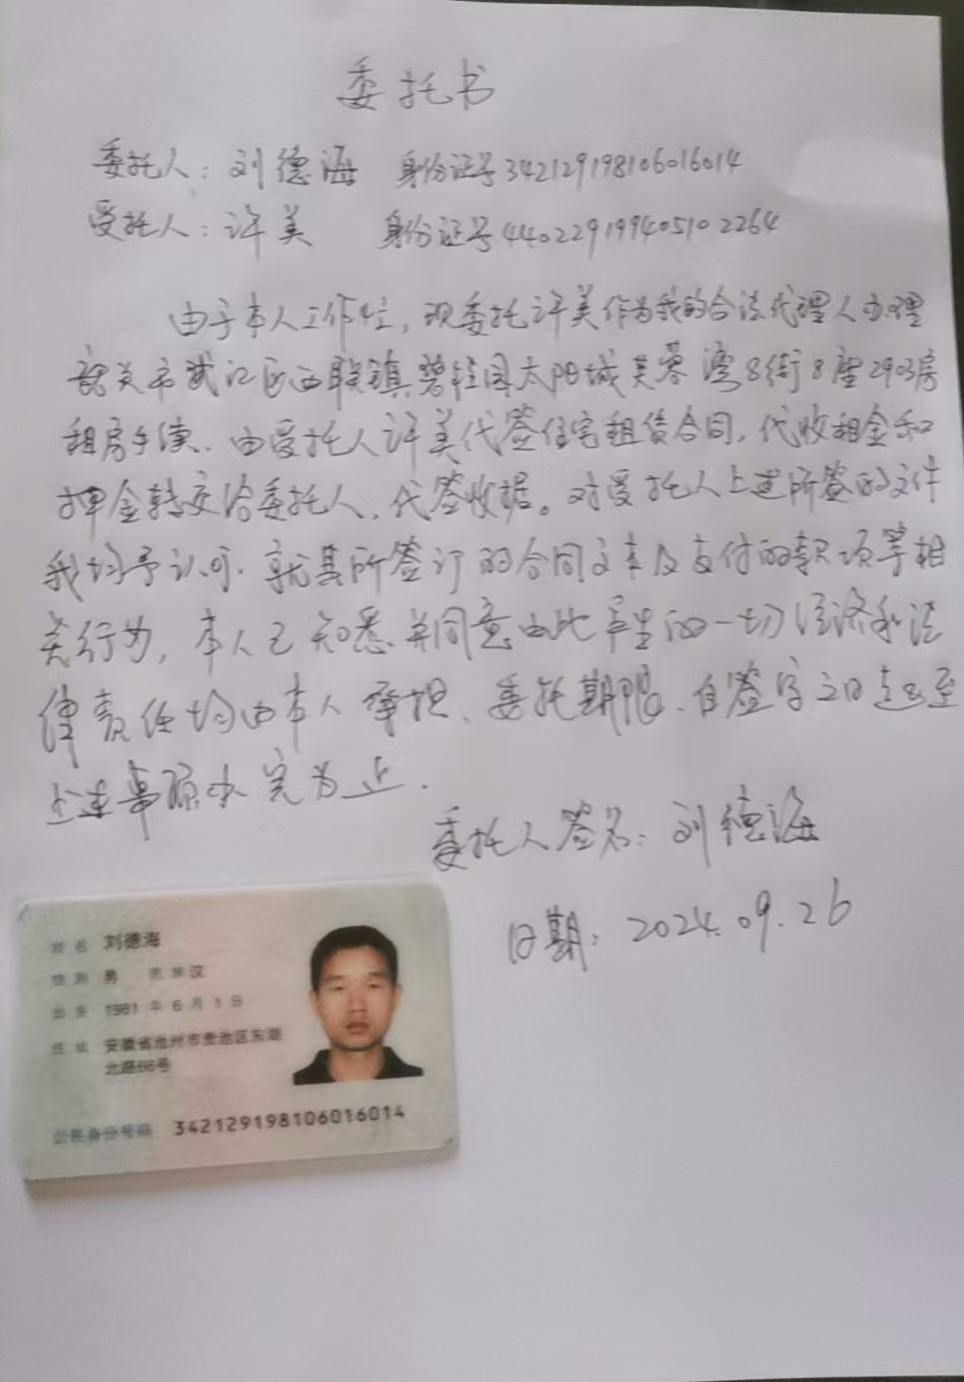 委托书
委托人：刘德海 身份证号342129198106016014
受托人：许美 身份证号440229199405102264
由于本人工作忙，现委托许美作为我的合法代理人办理
韶关市武江区西联镇碧桂园太阳城芙蓉湾8街8座2903房
租房手续、由受托人许美代签住宅租赁合同，代收租金和
押金转交给委托人、代签收据。对受托人上述所签的文件
我均予认可、就其所签订的合同文本及支付的款项等相
关行为，本人已知悉并同意由此产生的一切经济和法
律责任均由本人承担、委托期限、自签字之日起至
上述事项办完为止.
委托人签名：刘德海
日期：2024.09.26
姓名 刘德海
性别 男 民族汉
出生 1981 年 6 月 1 日
住址 安徽省池州市贵池区东湖
北路66号
公民身份号码 342129198106016014